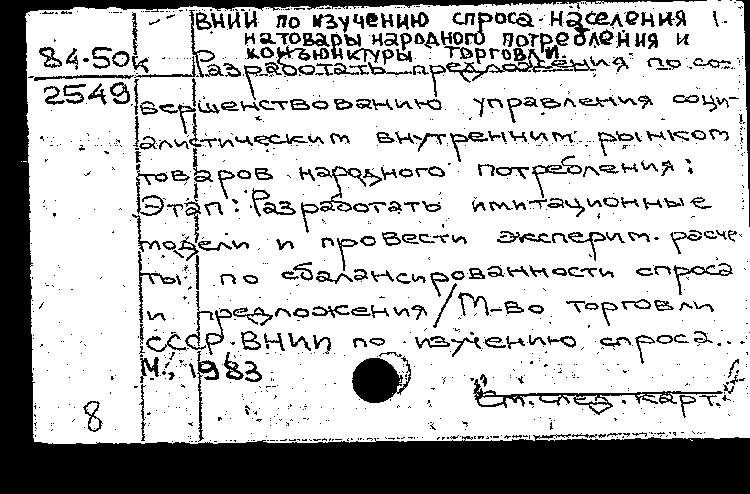 ВНИИ по изучению спроса населения 1.
на товары народного потребления и
конъюнктуры торговли.
84-50к
2549
Разработать предложения по со-
вершенствованию управления соци-
алистическим внутренним рынком
товаров народного потребления:
Этап: Разработать имитационные
модели и провести эксперим. расче-
ты по сбалансированности спроса
и предложения/М-во торговли
СССР. ВНИИ по изучению спроса...
М., 1983
8
См. след. карт.